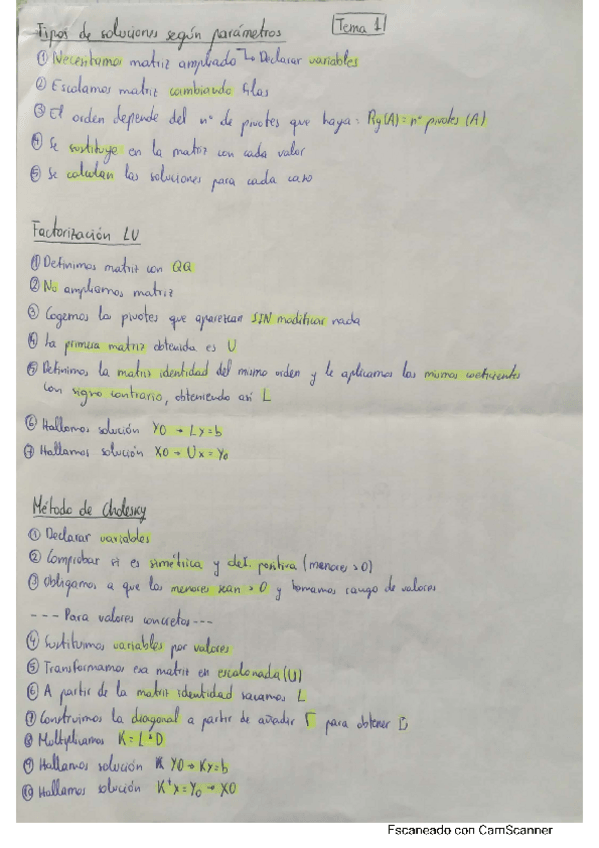 Tipos de soluciones según parámetros
Tema 1
① Necesitamos matriz ampliada ↳ Declarar variables
② Escalamos matriz cambiando filas
③ El orden depende del nº de pivotes que haya: Rg(A) = nº pivotes (A)
④ Se sustituye en la matriz con cada valor
⑤ Se calculan las soluciones para cada caso
Factorización LU
① Definimos matriz con QQ
② No ampliamos matriz
③ Cogemos los pivotes que aparezcan SIN modificar nada
④ La primera matriz obtenida es U
⑤ Definimos la matriz identidad del mismo orden y le aplicamos los mismos coeficientes
con signo contrario, obteniendo así L
⑥ Hallamos solución Y0 → Ly=b
⑦ Hallamos solución X0 → Ux=Y₀
Método de Cholesky
① Declarar variables
② Comprobar si es simétrica y def. positiva (menores >0)
③ Obligamos a que los menores sean >0 y tomamos rango de valores
--- Para valores concretos ---
④ Sustituimos variables por valores
⑤ Transformamos esa matriz en escalonada (U)
⑥ A partir de la matriz identidad sacamos L
⑦ Construimos la diagonal a partir de añadir √ para obtener D
⑧ Multiplicamos K=L*D
⑨ Hallamos solución Y0 → Ky=b
⑩ Hallamos solución Kᵗx=Y₀ → X0
Escaneado con CamScanner